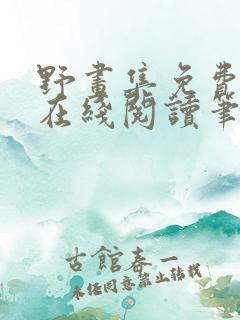 野畫集免費
在綫閱讀筆
古館春一
未經同意禁止轉載